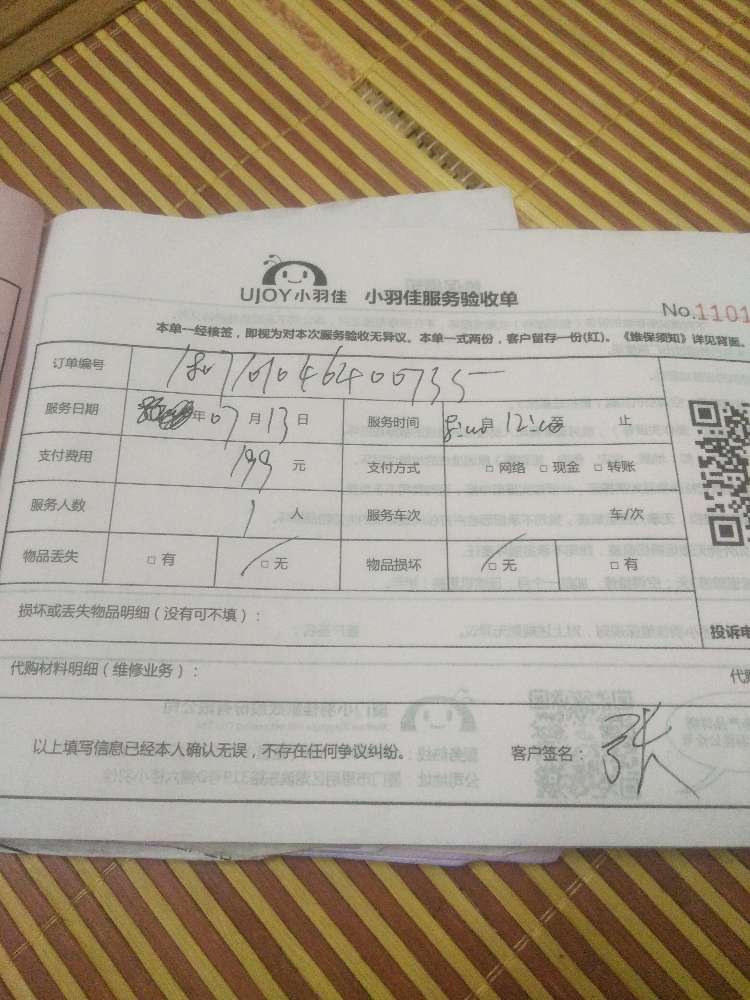 UJOY小羽佳 小羽佳服务验收单
No.1101
本单一经核签，即视为对本次服务验收无异议。本单一式两份，客户留存一份(红)。《维保须知》详见背面。
订单编号
服务日期 年07月13日 服务时间 自 12:00至 止
支付费用 199 元 支付方式 □ 网络 □ 现金 □ 转账
服务人数 1 人 服务车次 车/次
物品丢失 □ 有 □ 无 物品损坏 □ 无 □ 有
损坏或丢失物品明细（没有可不填）：
投诉电
代购材料明细（维修业务）： 代购
以上填写信息已经本人确认无误，不存在任何争议纠纷。 客户签名：张